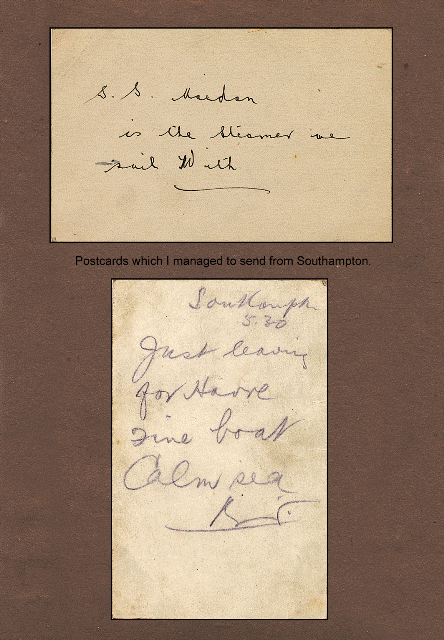 S. S.
is the steamer we
sail With
Postcards which I managed to send from Southampton.
5.30
Just leaving
for Havre
Fine boat
Calm sea